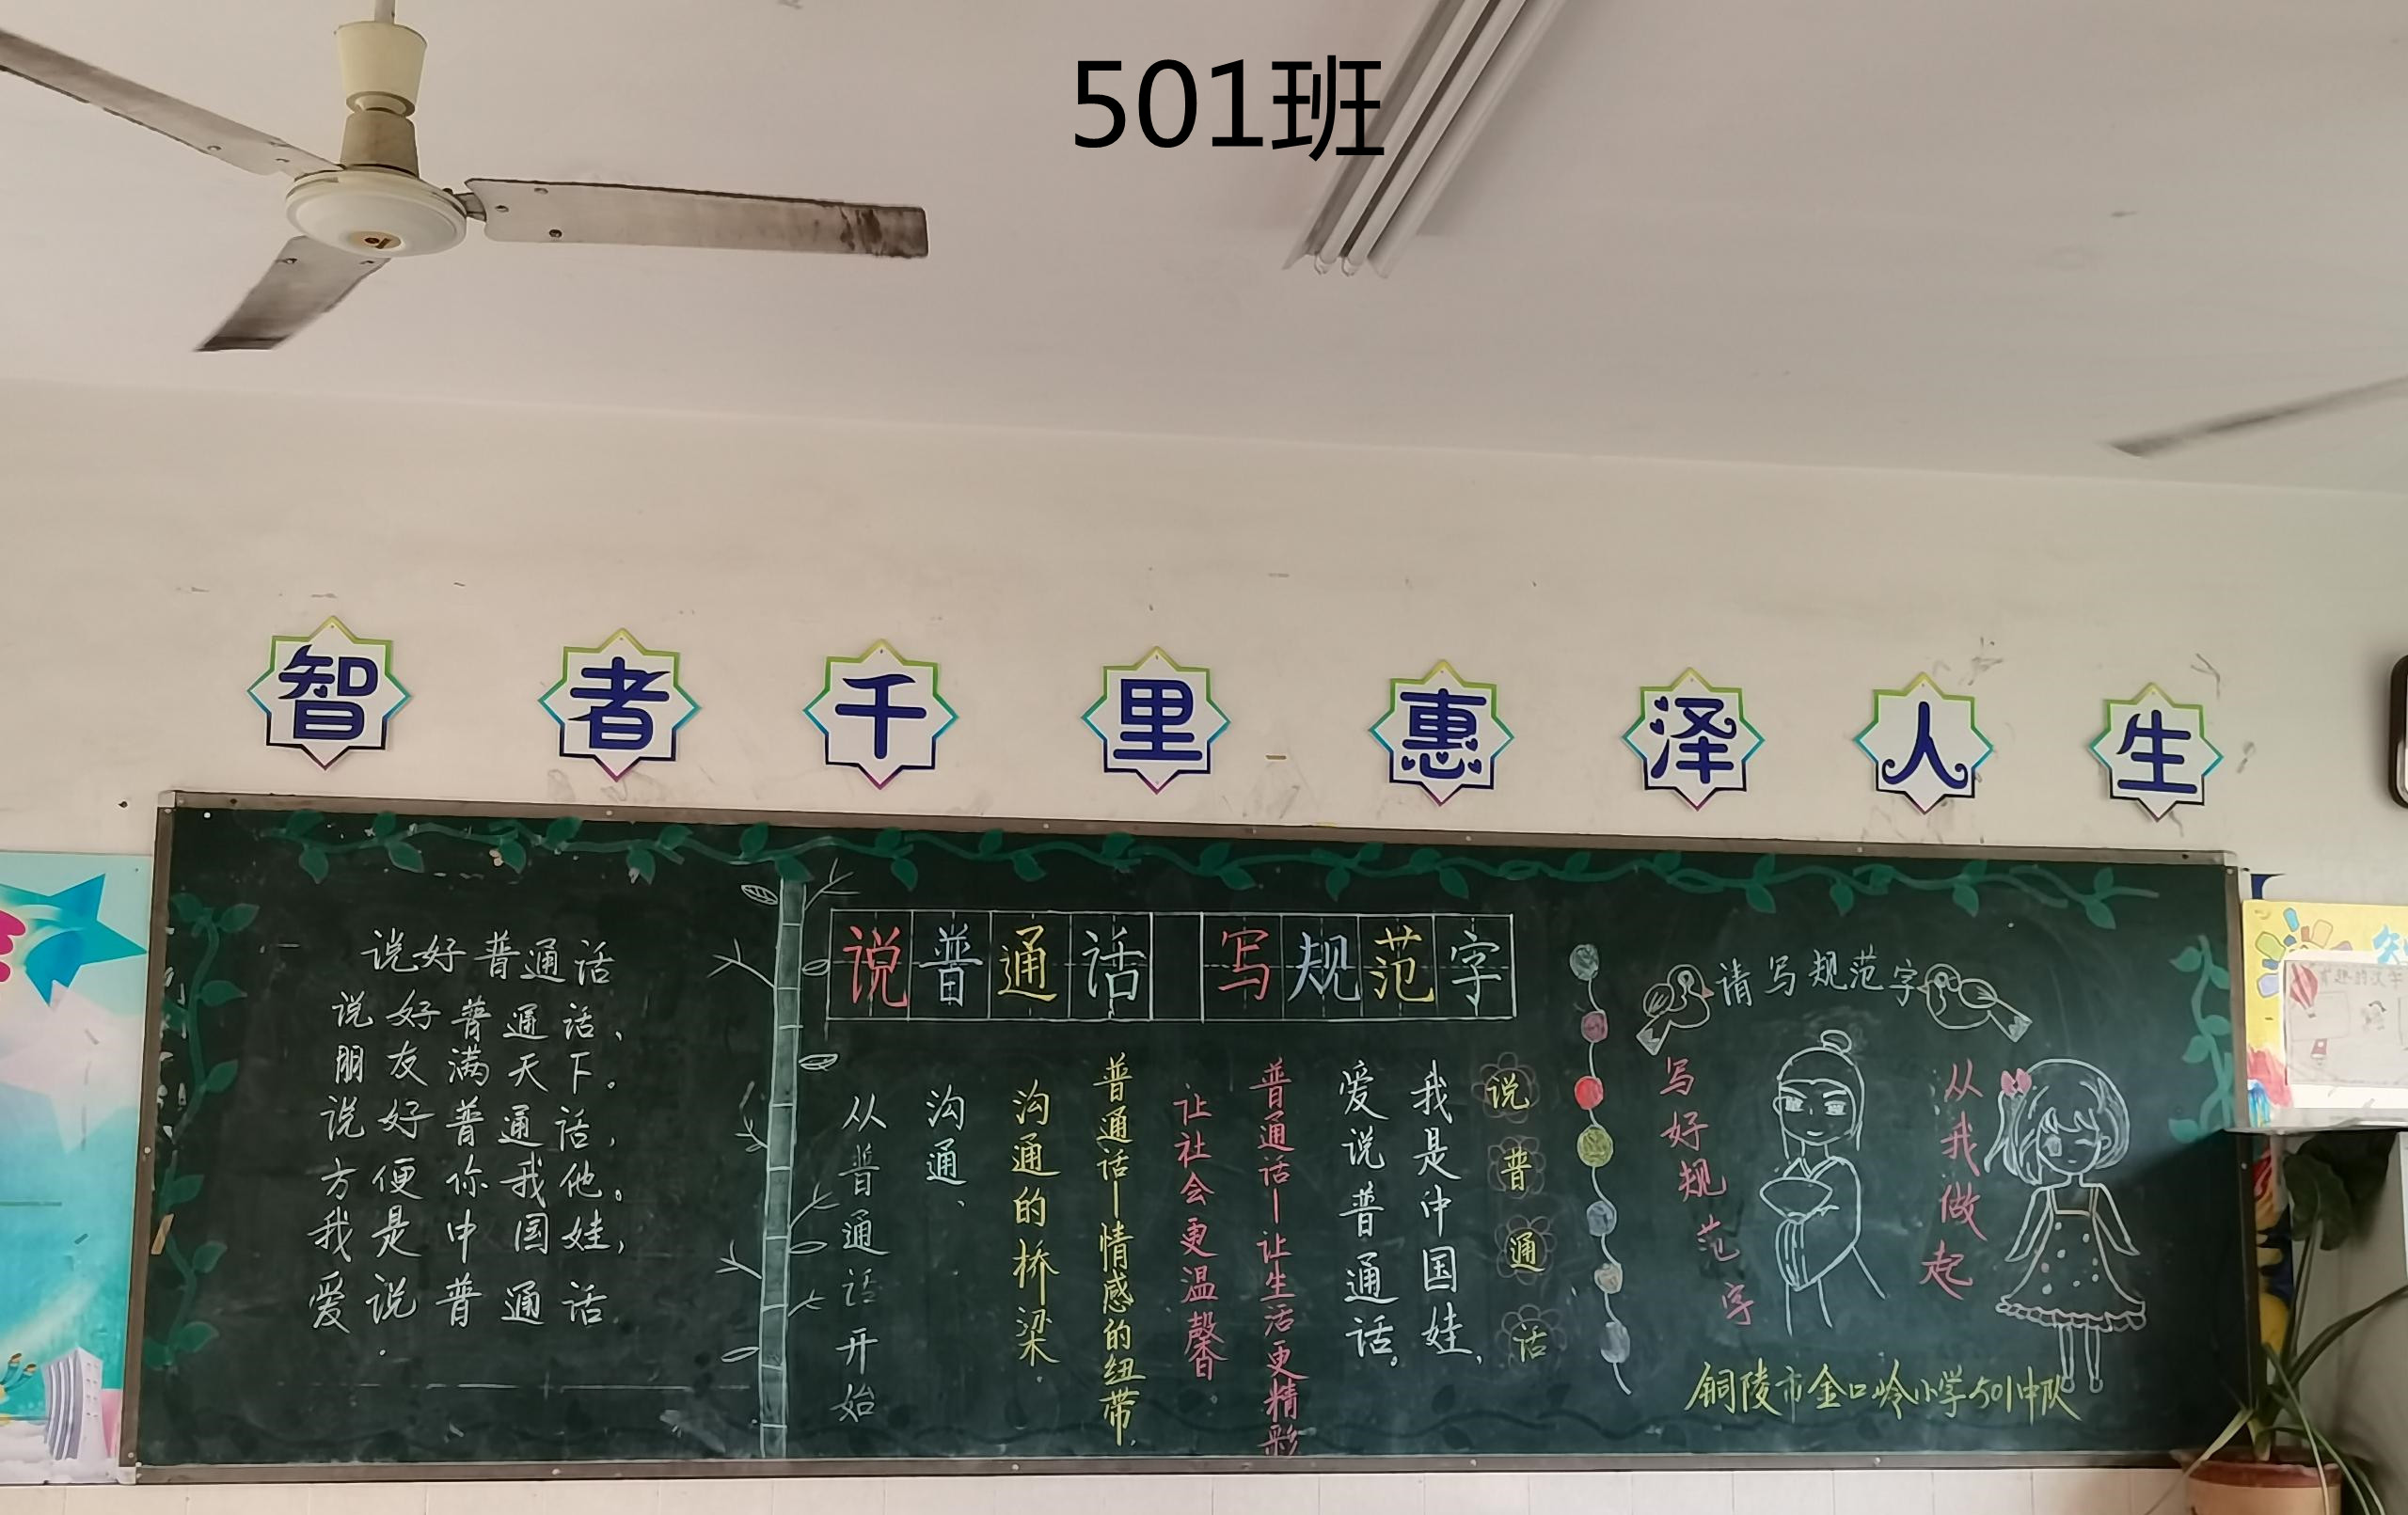 501班
智者千里惠泽人生
说好普通话
说好普通话、
朋友满天下。
说好普通话,
方便你我他。
我是中国娃,
爱说普通话
说普通话 写规范字
说普通话
我是中国娃、
爱说普通话。
普通话—让生活更精彩
让社会更温馨。
普通话—情感的纽带、
沟通的桥梁.
沟通、
从普通话开始
请写规范字
写好规范字
从我做起
铜陵市金口岭小学501中队